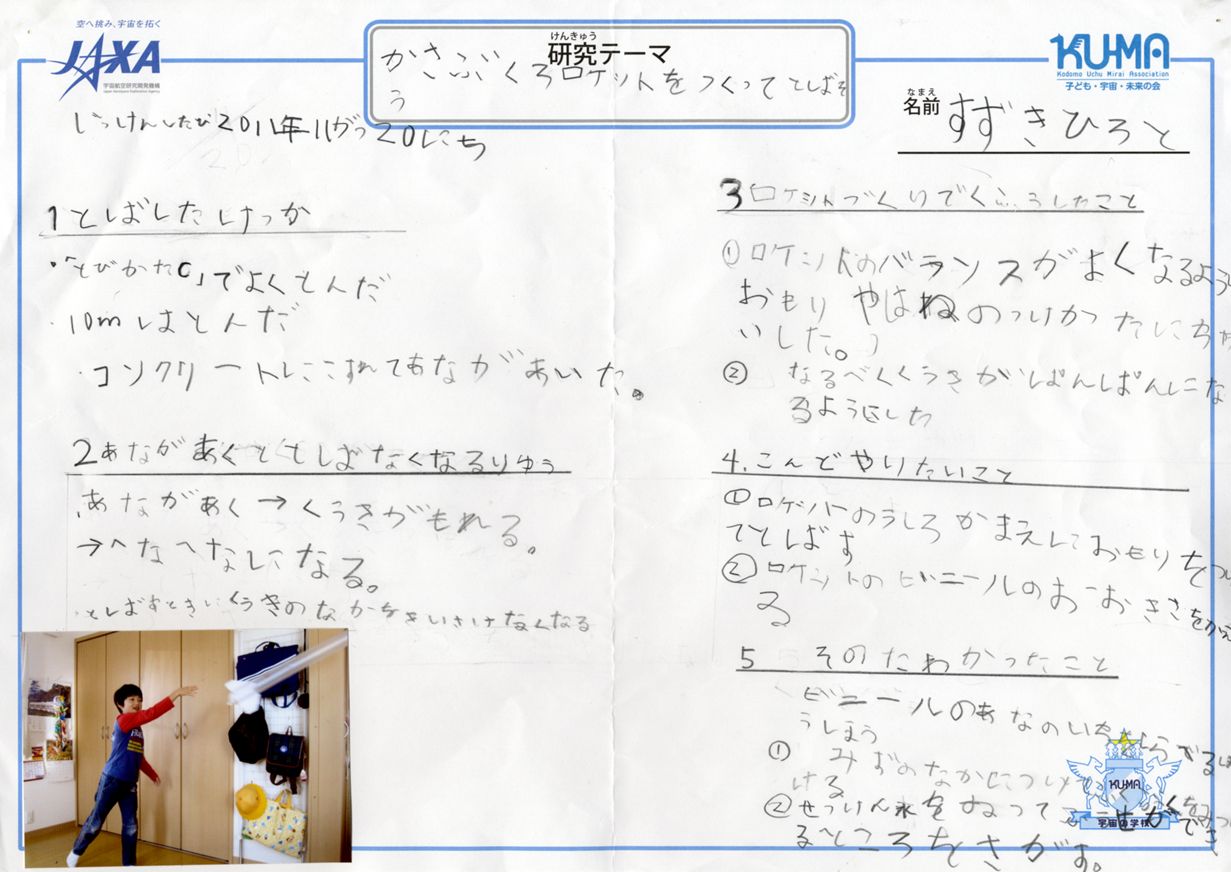 空へ挑み、宇宙を拓く
JAXA
宇宙航空研究開発機構
Japan Aerospace Exploration Agency
けんきゅう
研究テーマ
かさぶくろロケットをつくってとばそ
う
KU-MA
Kodomo Uchu Mirai Association
子ども・宇宙・未来の会
なまえ
名前 すずきひろと
じっけんしたひ2011年11がつ20にち
1とばしたけっか
・「とびかたC」でよくとんだ
・10mはとんだ
・コンクリートにこすれてあながあいた。
2あながあくととばなくなるりゆう
・あながあく→くうきがもれる。
→へなへなになる。
・とばすときに くうきのなかを
なくなる
3ロケットづくりでくふうしたこと
①ロケットのバランスがよくなるよう
おもり やはねのつけかたにちゅ
いした。
② なるべくくうきがぱんぱんにな
るようにした
4.こんどやりたいこと
①ロケットのうしろ かまえにおもりをつけ
てとばす
②ロケットのビニールのおおきさをかえ
る
5 そのたわかったこと
ビニールのあなの
うほう
① みずのなかにつけて
ける
②せっけん水をぬって
るところをさがす。
KU-MA
宇宙の学校